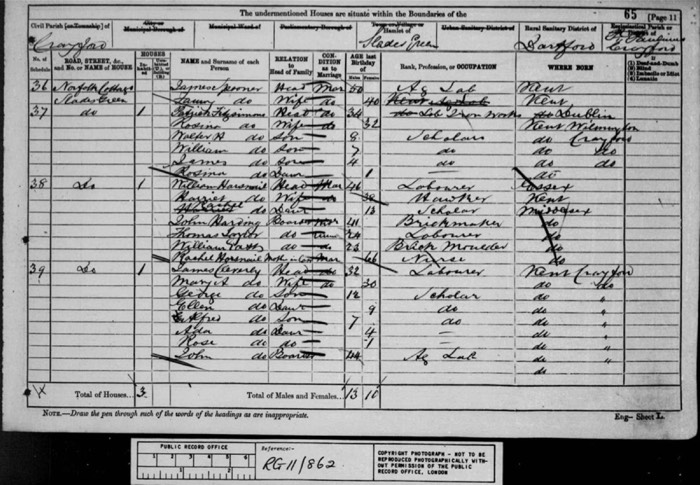 The undermentioned Houses are situate within the Boundaries of the 65 [Page 11
Civil Parish [or Township] of City or Municipal Borough of Municipal Ward of Parliamentary Borough of Town or Village or Hamlet of Urban Sanitary District of Rural Sanitary District of Ecclesiastical Parish or District of
Crayford Slades Green Dartford Crayford
No. of Schedule ROAD, STREET, &c., and No. or NAME of HOUSE HOUSES NAME and Surname of each Person RELATION to Head of Family CONDITION as to Marriage AGE last Birthday of Males Females Rank, Profession, or OCCUPATION WHERE BORN (1) Deaf-and-Dumb (2) Blind (3) Imbecile or Idiot (4) Lunatic
36 Norfolk Cottages 1 James Head Mar 60 Ag Lab Kent
Slades Green Laura do Wife do 40 Kent
37 do 1 Patrick Fitzsimmons Head do 34 do Lab Iron Works do Dublin
Rosina do Wife do 32 Kent Wilmington
Walter do Son 8 Scholar do Crayford
William do Son 7 do do do
James do Son 4 do do do
Rosina do Daur 1 do
38 Do 1 William Horsnail Head Mar 46 Labourer Essex
Harriet do Wife do 38 Hawker Kent
do Daur 13 Scholar Middsex
John Harding Boarder Mar 41 Brickmaker do
Thomas do 24 Labourer do
William do do 23 Brick Moulder do
Rachel Horsnail Mother in Law Mar 66 Nurse do
39 Do 1 James Cleverly Head do 32 Labourer Kent Crayford
Mary A do Wife do 30 do do
George do Son 12 Scholar do "
Ellen do Daur 9 do do "
Alfred do Son 7 do do "
Ada do Daur 4 do "
Rose do do 1 do "
John do Boarder 44 Ag Lab do "
do
Total of Houses... 3 Total of Males and Females.. 13 10
NOTE.—Draw the pen through such of the words of the headings as are inappropriate. Eng— Sheet L.
PUBLIC RECORD OFFICE
1 2 3 4 5 6
Reference:-
RG 11/862
COPYRIGHT PHOTOGRAPH - NOT TO BE REPRODUCED PHOTOGRAPHICALLY WITHOUT PERMISSION OF THE PUBLIC RECORD OFFICE, LONDON